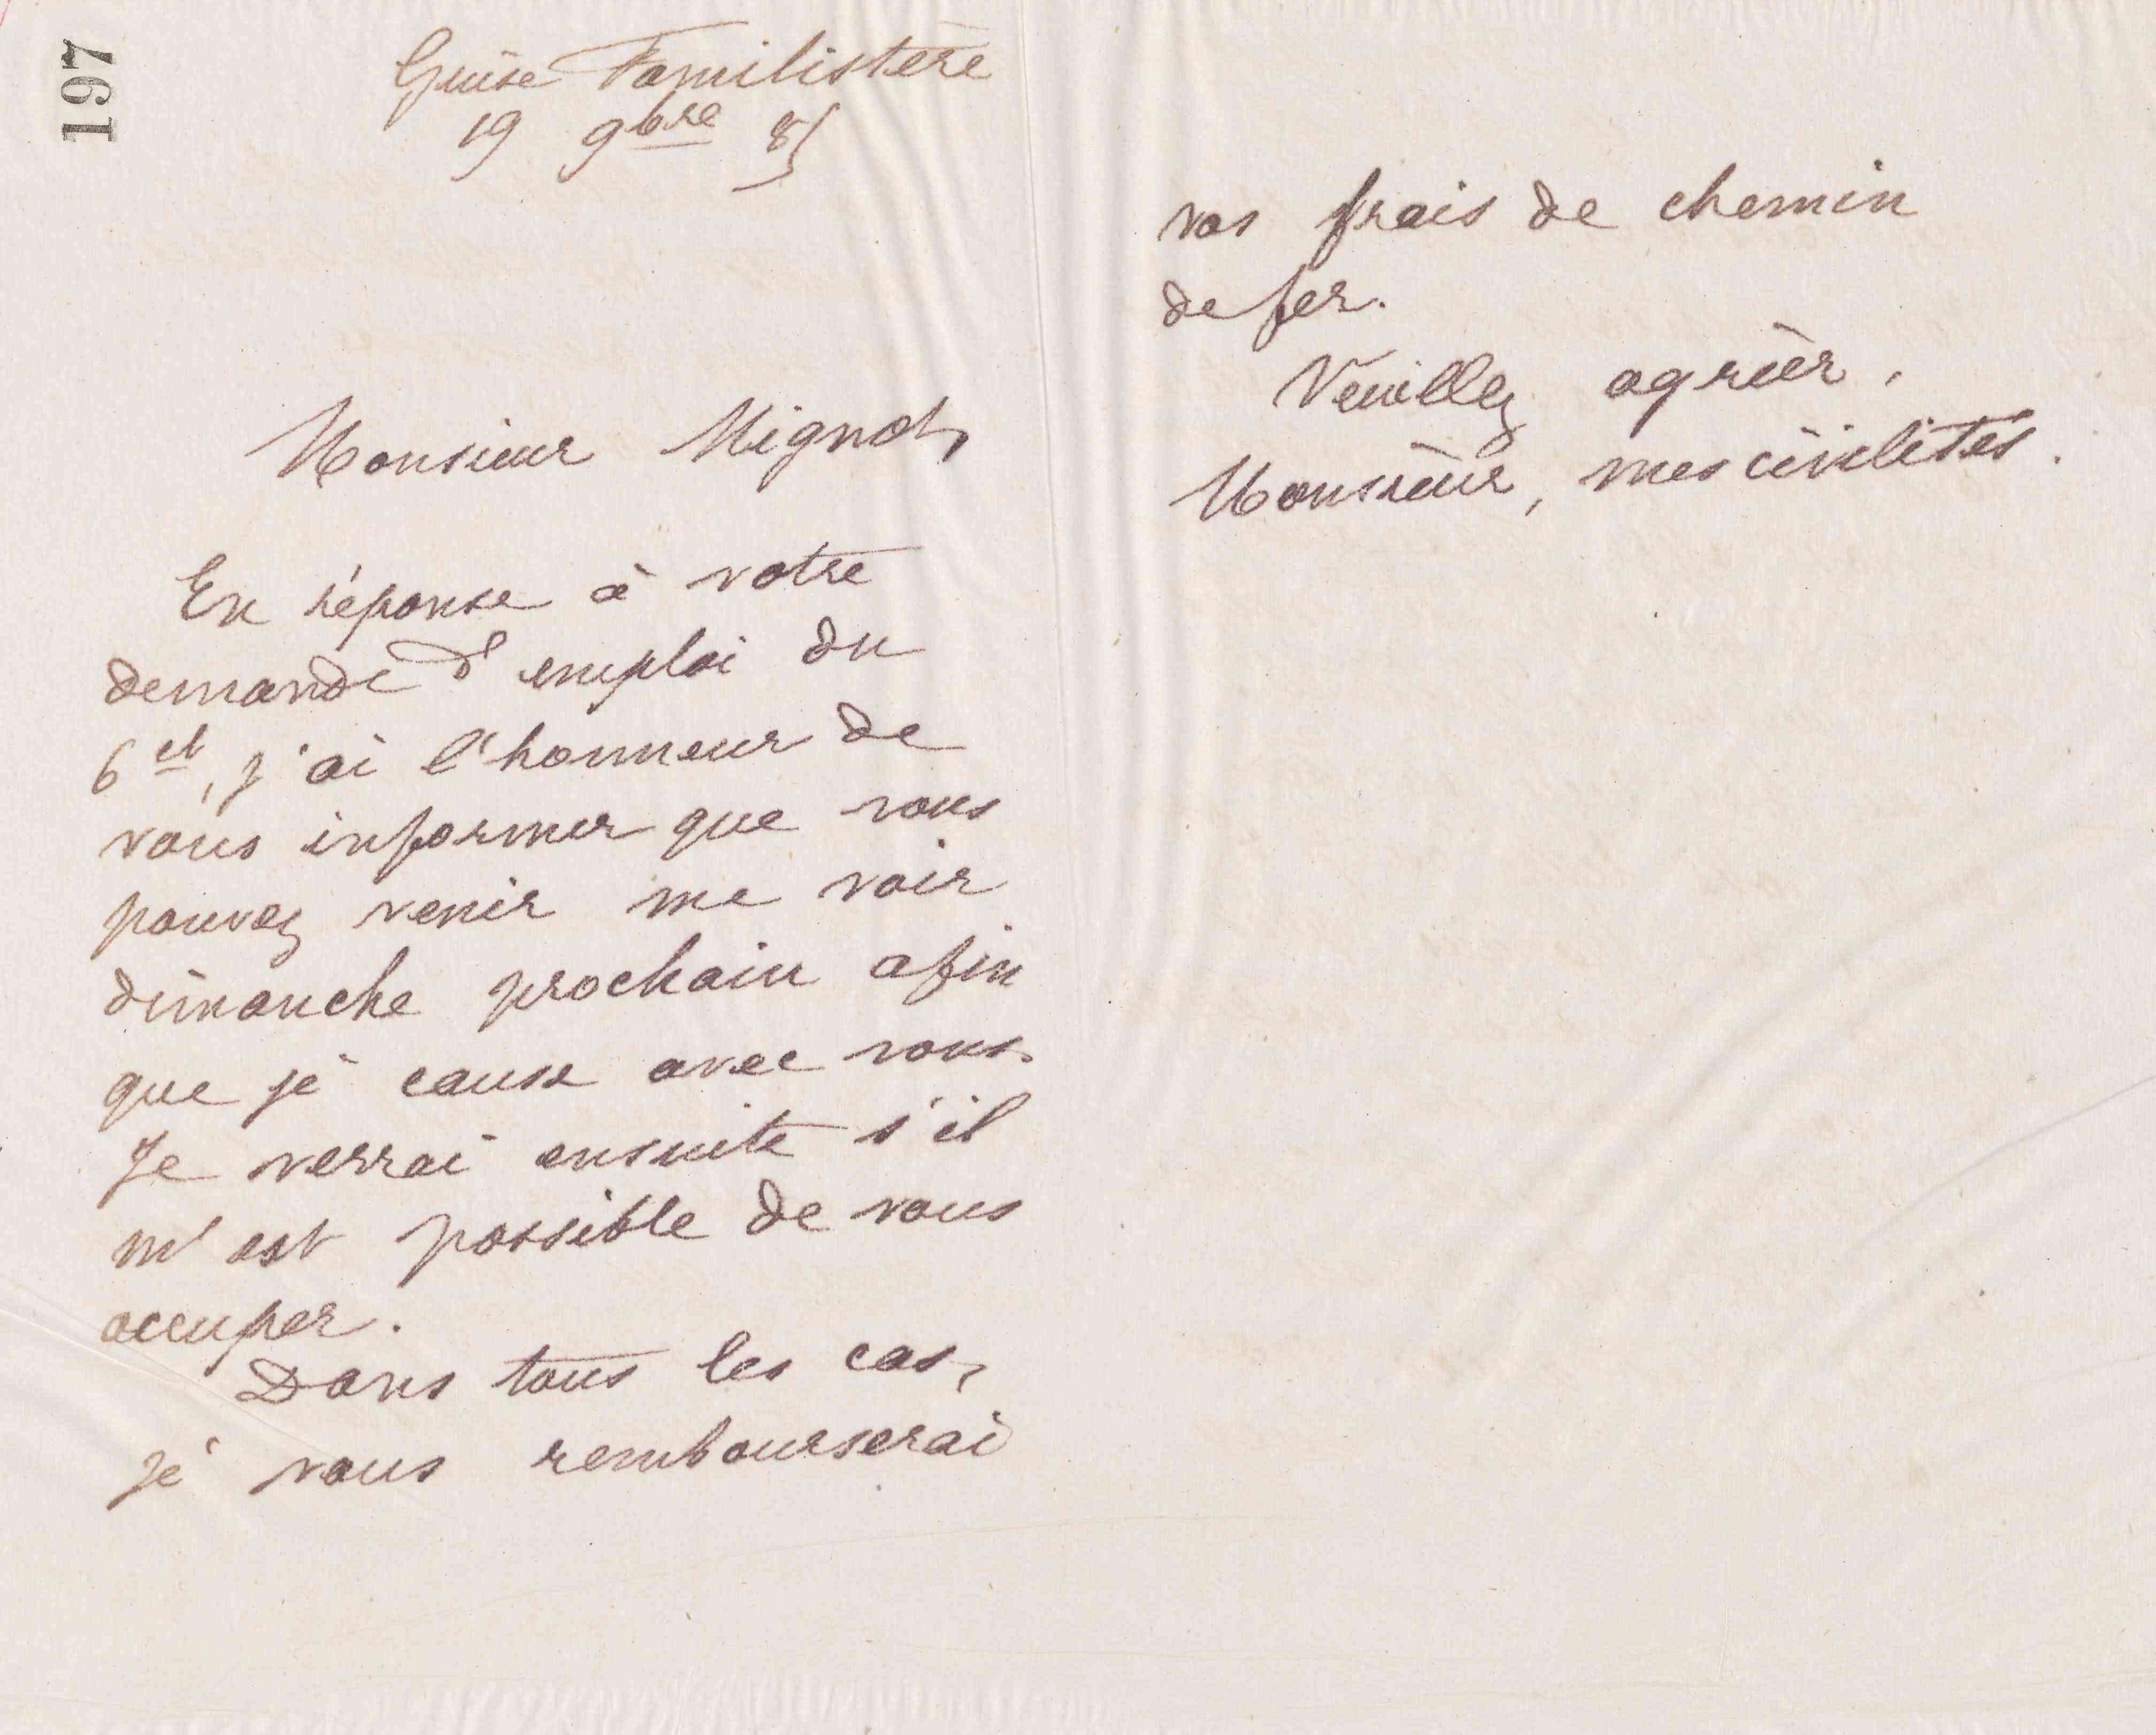 197
Guise Familistère
19 9bre 85
Monsieur Mignot,
En réponse à votre
demande d'emploi du
6 ct, j'ai l'honneur de
vous informer que vous
pouvez venir me voir
dimanche prochain afin
que je cause avec vous.
Je verrai ensuite s'il
m'est possible de vous
occuper.
Dans tous les cas,
je vous rembourserai
vos frais de chemin
de fer.
Veuillez agréer,
Monsieur, mes civilités.